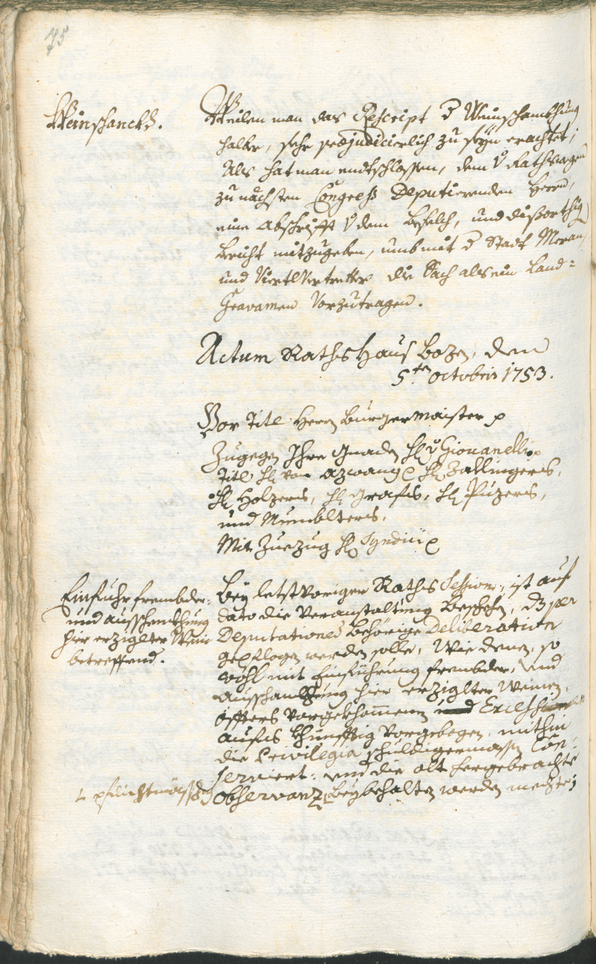 75
Weinschancks.
Weilen man das Rescript d Weinschanckhung
halber, sehr praejudicierlich zu seyn erachtet;
Als hat man entschlossen, dem v Raths wegen
zu nächsten Congress Deputierenden Herrn,
eine Abschrifft v dem Befelch, und diessorthig
bericht mitzugeben, umb mit d Statt Meran,
und Viertlvertretter die Sach als ein Land=
Gravamen vorzutragen.
Actum Raths Haus Bozen, den
5ten octobris 1753.
Vor Titl Herrn Burgermaister p
Zugegen Ihro Gnaden H v Giovanelli p
Titl H von Azwang p H Zallingers,
H Holzers, H Grafs, H Puzers,
und Mumblters.
Mit Zuezug H Syndici p
Einfuhr frembder,
und ausschenkhung
hier erzigleter Wein
betreffend.
Bey letst voriger Raths Session, ist auf
dato die Veranstaltung beschehen, dz per
Deputationes behörige Deliberation
gepflogen werden solle, wie denen, so
wohl mit Einführung frembder, und
ausschankhung hier erzigleter Weinen,
öffters vorgekhomenen Excessen
aufs khünfftig vorgebogen, mithin
die Privilegia schuldigermassen con=
serviert: und die alt hergebrachte
L pflichtmässig
observanz beybehalten werden mechte;